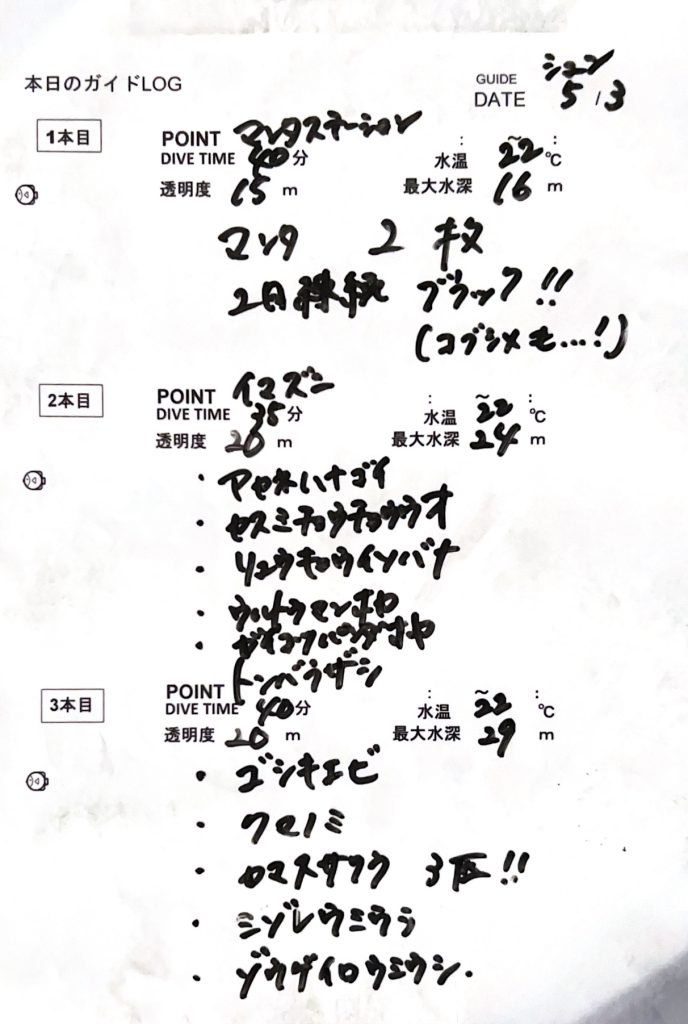 本日のガイドLOG
GUIDE シュン
DATE 5 / 3
1本目
POINT マンタステーション
DIVE TIME 40分 水温 ~22℃
透明度 15 m 最大水深 16 m
マンタ 2 枚
2日連続 ブラック!!
(コブシメも…!)
2本目
POINT イマズニ
DIVE TIME 35分 水温 ~22℃
透明度 20 m 最大水深 24 m
・アカネハナゴイ
・セスミチョウチョウウオ
・リュウキュウイソバナ
・ウルトラマンホヤ
・ガイコツパンダホヤ
3本目
POINT トンバラザシ
DIVE TIME 40分 水温 ~22℃
透明度 20 m 最大水深 29 m
・ゴシキエビ
・クマノミ
・カマスサワラ 3匹!!
・ミゾレウミウシ
・ゾウゲイロウミウシ.